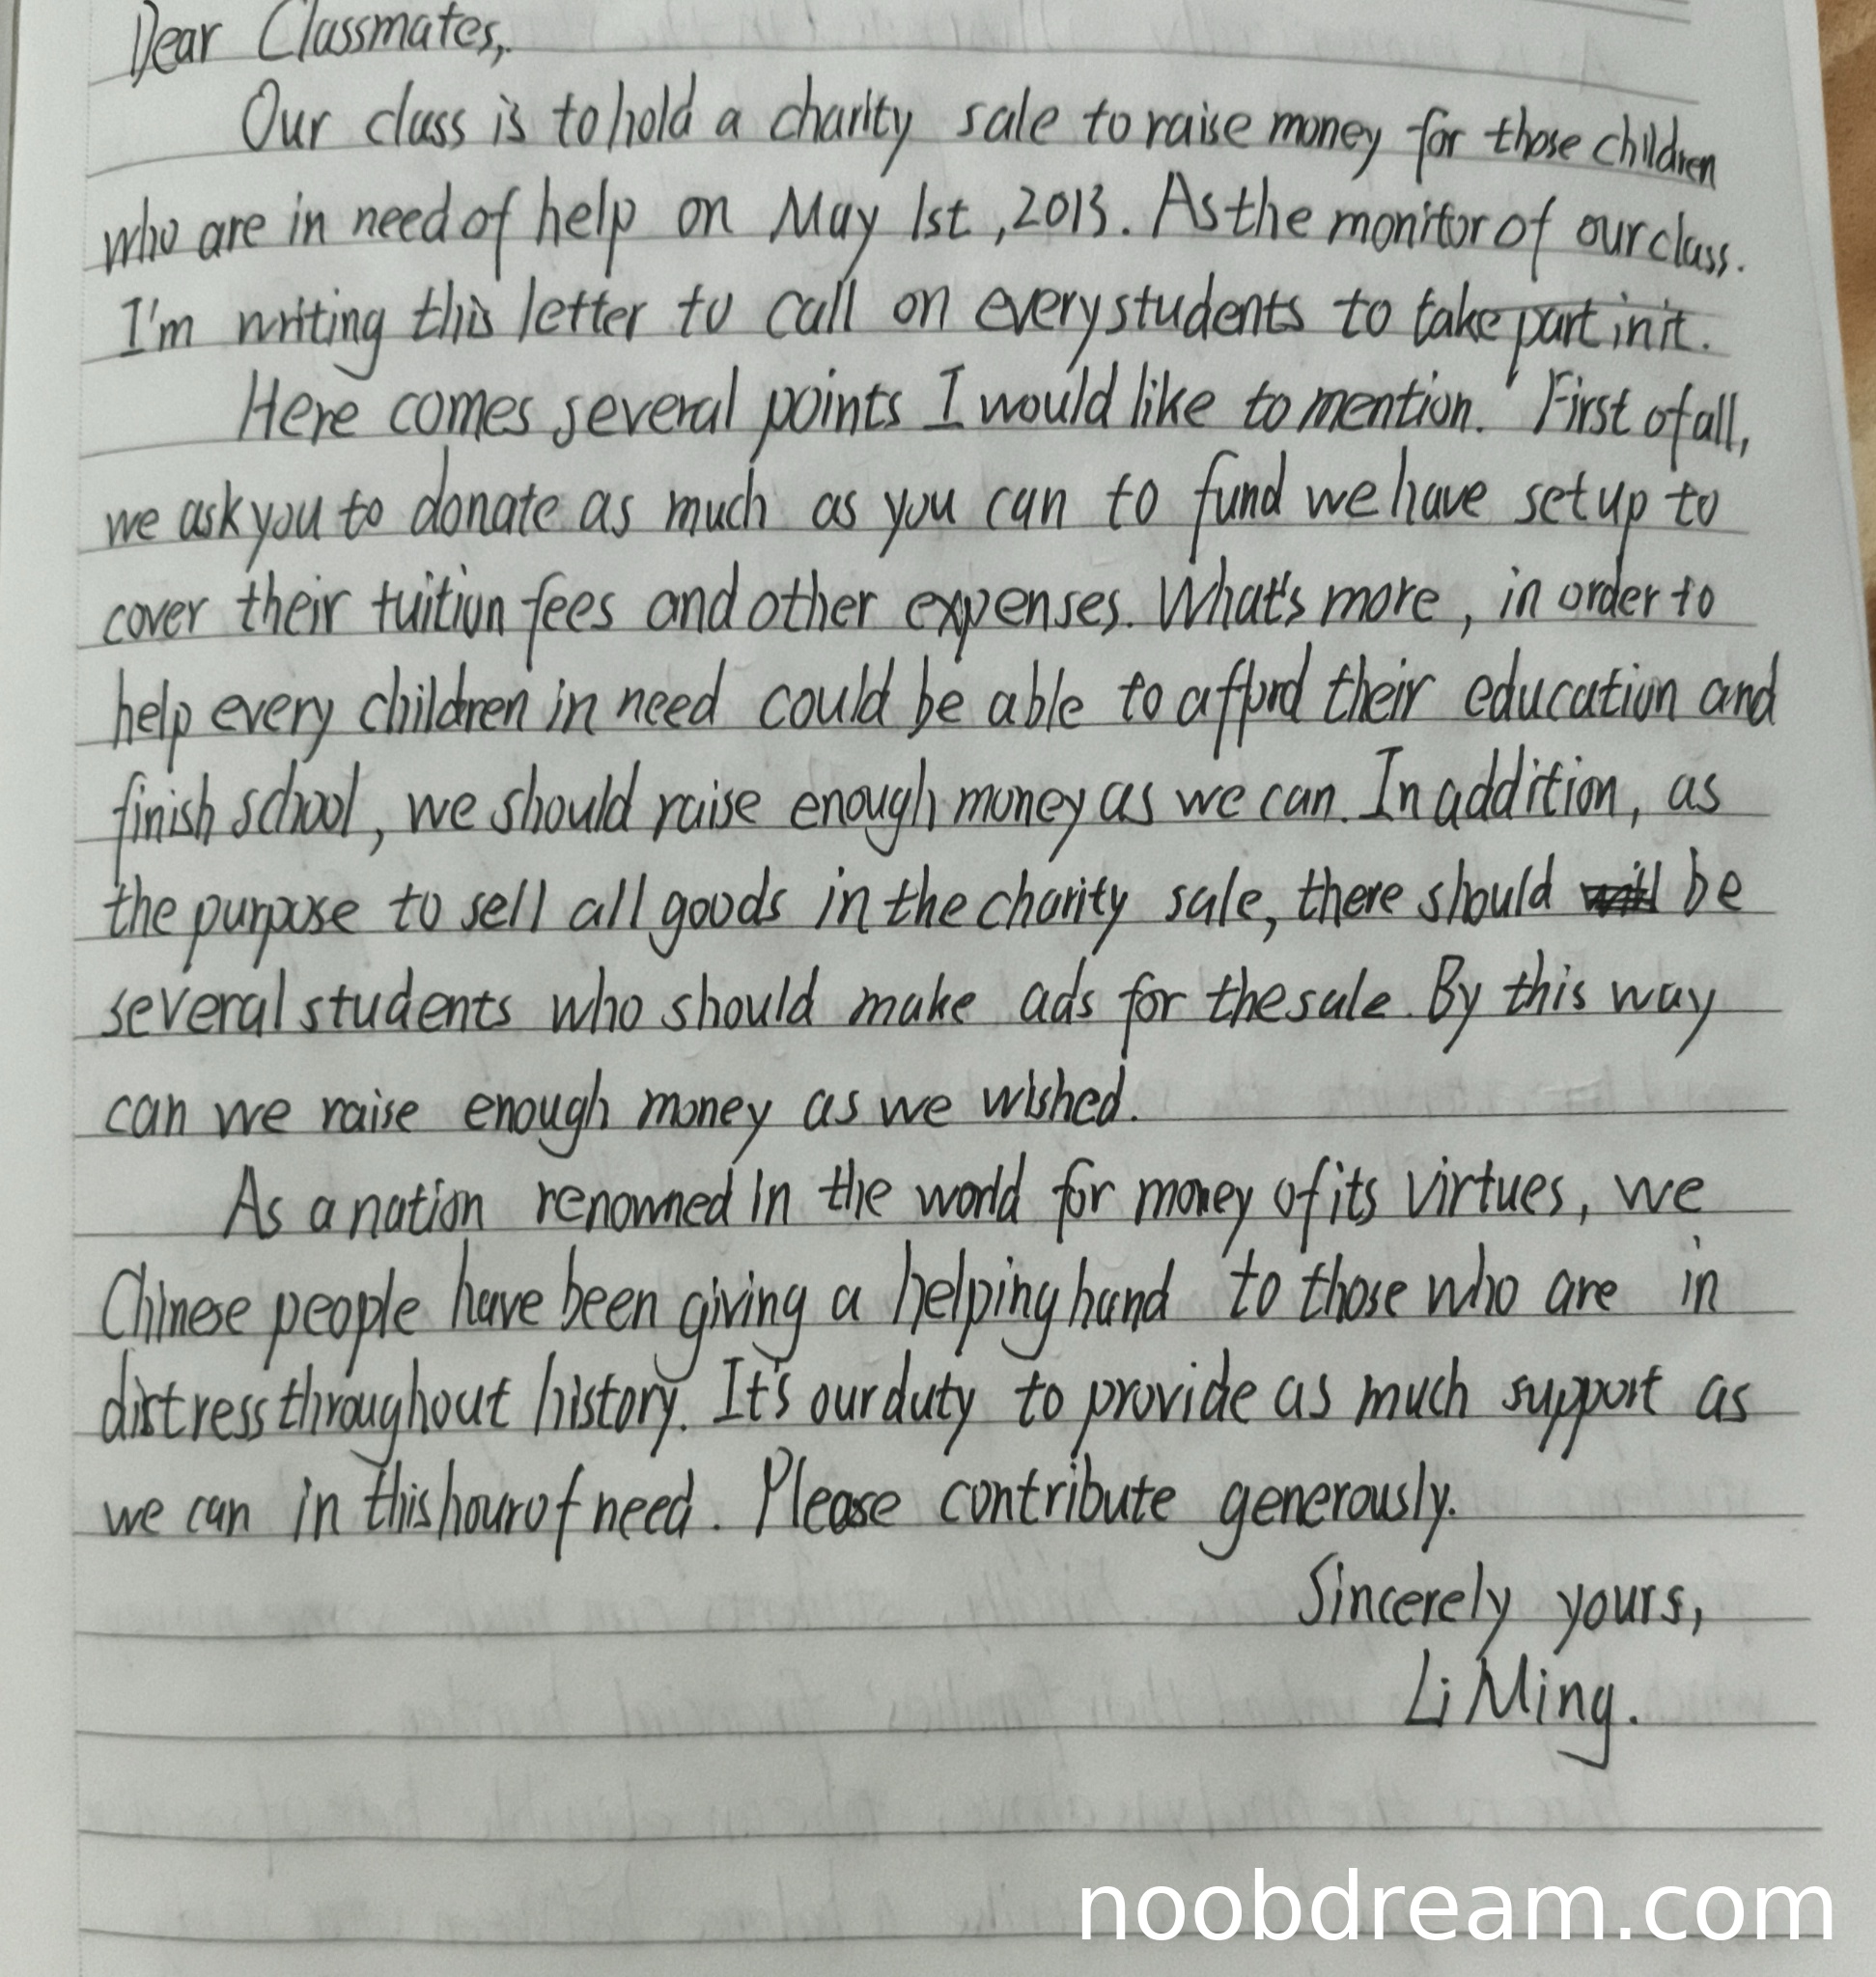 Dear Classmates,
Our class is to hold a charity sale to raise money for those children
who are in need of help on May 1st, 2013. As the monitor of our class.
I'm writing this letter to call on every students to take part in it.
Here comes several points I would like to mention. First of all,
we ask you to donate as much as you can to fund we have set up to
cover their tuition fees and other expenses. What's more, in order to
help every children in need could be able to afford their education and
finish school, we should raise enough money as we can. In addition, as
the purpose to sell all goods in the charity sale, there should be
several students who should make ads for the sale. By this way
can we raise enough money as we wished.
As a nation renowned in the world for money of its virtues, we
Chinese people have been giving a helping hand to those who are in
distress throughout history. It's our duty to provide as much support as
we can in this hour of need. Please contribute generously.
Sincerely yours,
Li Ming.
noobdream.com